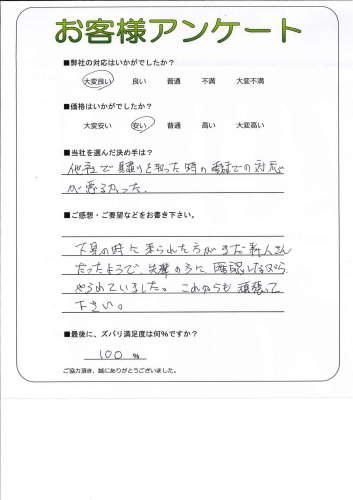 お客様アンケート
■弊社の対応はいかがでしたか?
大変良い 良い 普通 不満 大変不満
■価格はいかがでしたか?
大変安い 安い 普通 高い 大変高い
■当社を選んだ決め手は?
他社で見積りを取った時の電話での対応
が悪かった.
■ご感想・ご要望などをお書き下さい。
下見の時に来られた方がまだ新人さん
だったようで、先輩の方に確認しながら
やられていました。これからも頑張って
下さい。
■最後に、ズバリ満足度は何%ですか?
100 %
ご協力頂き、誠にありがとうございました。